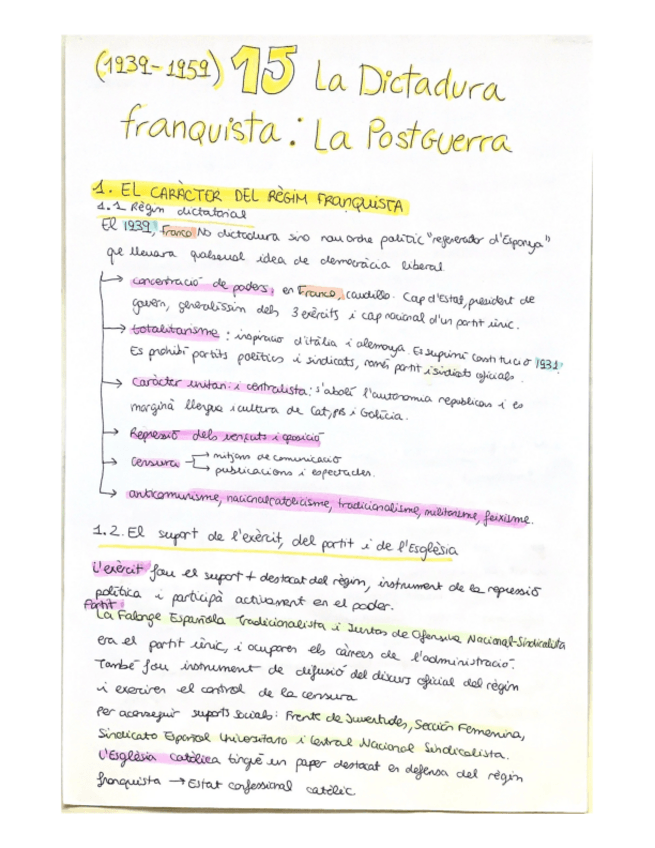 (1939-1959) 15 La Dictadura
franquista: La PostGuerra
1. EL CARÀCTER DEL RÈGIM FRANQUISTA
1.1 Règim dictatorial
El 1939, Franco No dictadura sino nou ordre polític "regenerador d'Espanya"
que llevara qualsevol idea de democràcia liberal.
→ concentració de poders: en Franco, caudillo. Cap d'Estat, president de
govern, generalíssim dels 3 exèrcits i cap nacional d'un partit únic.
→ totalitarisme: inspiració d'Itàlia i alemanya. Es suprimí constitució 1931.
Es prohibí partits polítics i sindicats, només partit i sindicats oficials.
→ Caràcter unitari i centralista: s'abolí l'autonomia republicana i es
marginà llengua i cultura de Cat, PB i Galícia.
→ Repressió dels vençuts i oposició
→ Censura → mitjans de comunicació
→ publicacions i espectacles.
→ anticomunisme, nacionalcatolicisme, tradicionalisme, militarisme, feixisme.
1.2. El suport de l'exèrcit, del partit i de l'Església
L'exèrcit fou el suport + destacat del règim, instrument de la repressió
política i participà activament en el poder.
Partit:
La Falange Española Tradicionalista i Juntas de Ofensiva Nacional-Sindicalista
era el partit únic, i ocuparen els càrrecs de l'administració.
També fou instrument de difusió del discurs oficial del règim
i exerciren el control de la censura
Per aconseguir suports socials: Frente de Juventudes, Sección Femenina,
Sindicato Español Universitario i Central Nacional Sindicalista.
L'Església catòlica tingué un paper destacat en defensa del règim
franquista → Estat confessional catòlic